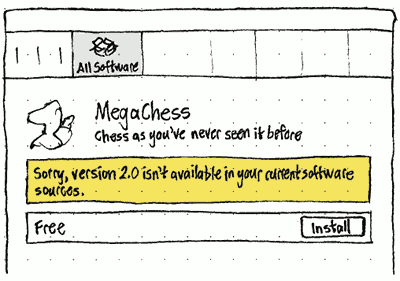 All Software
MegaChess
Chess as you've never seen it before
Sorry, version 2.0 isn't available in your current software
sources.
Free
Install